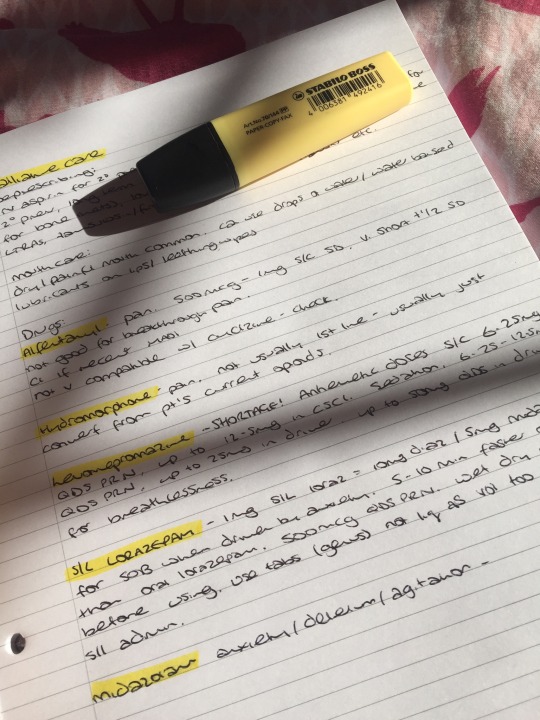 STABILO BOSS
Art.No.70/144
PAPER-COPY-FAX
4 006381 492416
for
alliative care
deprescribing:
aspirin for 2°
2° prev, long term
etc.
for bone
mouthcare:
dry/painful mouth common. Ca use drops o water/water based
lubricants on lips/teething wipes
Drugs:
Alfentanyl - pain. 500mcg - 1mg s/c SD. v. short t½ so
not good for breakthrough pain.
CI if recent MAOI.
not v compatible w/ cyclizine - check.
Hydromorphone - pain, not usually 1st line - usually just
convert from pt's current opioids.
Levomepromazine - SHORTAGE! Antiemetic doses s/c 6.25mg
QDS PRN, up to 12.5mg in CSCI. Sedation, 6.25-12.5m
QDS PRN, up to 25mg in driver up to 50mg QDS in driv
for breathlessness.
S/L LORAZEPAM - 1mg S/L loraz = 10mg diaz / 5mg mida
for SOB when driven by anxiety. 5-10 min faster
than oral lorazepam. 500mcg QDS PRN. wet dry
before using. use tabs (genus) not liq as vol too
s/l admin.
Midazolam anxiety/delirium/agitation -